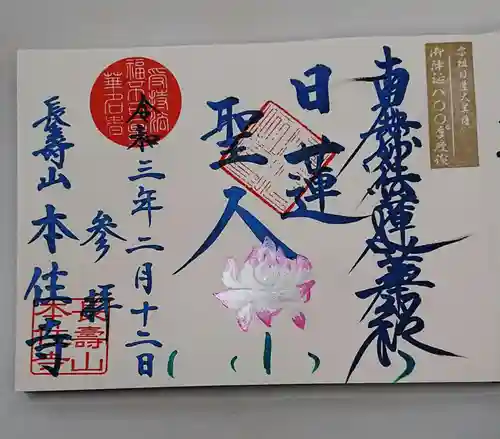 宗祖日蓮大菩薩
御降誕八〇〇年慶讃
南無妙法蓮華経
日蓮
聖人
令和三年二月十二日
参拝
長壽山
本住寺
受持法華名者
福不可量
長壽山
本住寺